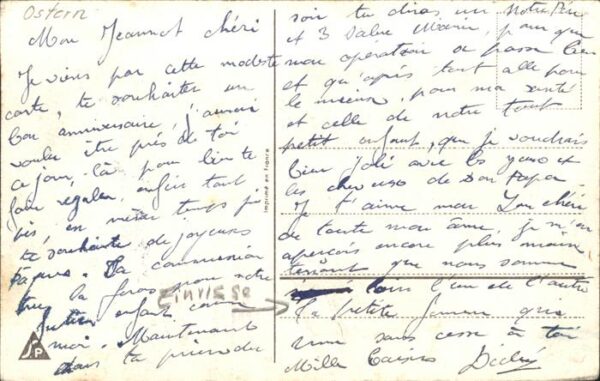 Ostern
Mon Jeannot chéri
Je viens par cette modeste
carte, te souhaiter un
bon anniversaire, j'aurais
voulu être près de toi
ce jour-là, pour bien te
régaler, enfin tant
pis, en même temps je
te souhaite de joyeuses
Pâques. La communion
tu la feras pour notre
enfant comme
moi. Maintenant
dans ta prière du
soir tu diras un Notre Père
et 3 Salue Marie, pour que
mon opération se passe bien
et qu'après tout aille pour
le mieux, pour ma santé
et celle de notre tout
petit enfant, que je voudrais
bien joli avec les yeux et
les cheveux de son papa
Je t'aime mon Jean chéri
de toute mon âme, je m'en
aperçois encore plus main
tenant que nous sommes
loin l'un de l'autre
Ta petite femme qui
pense sans cesse à toi
Mille baisers
Imprimé en France